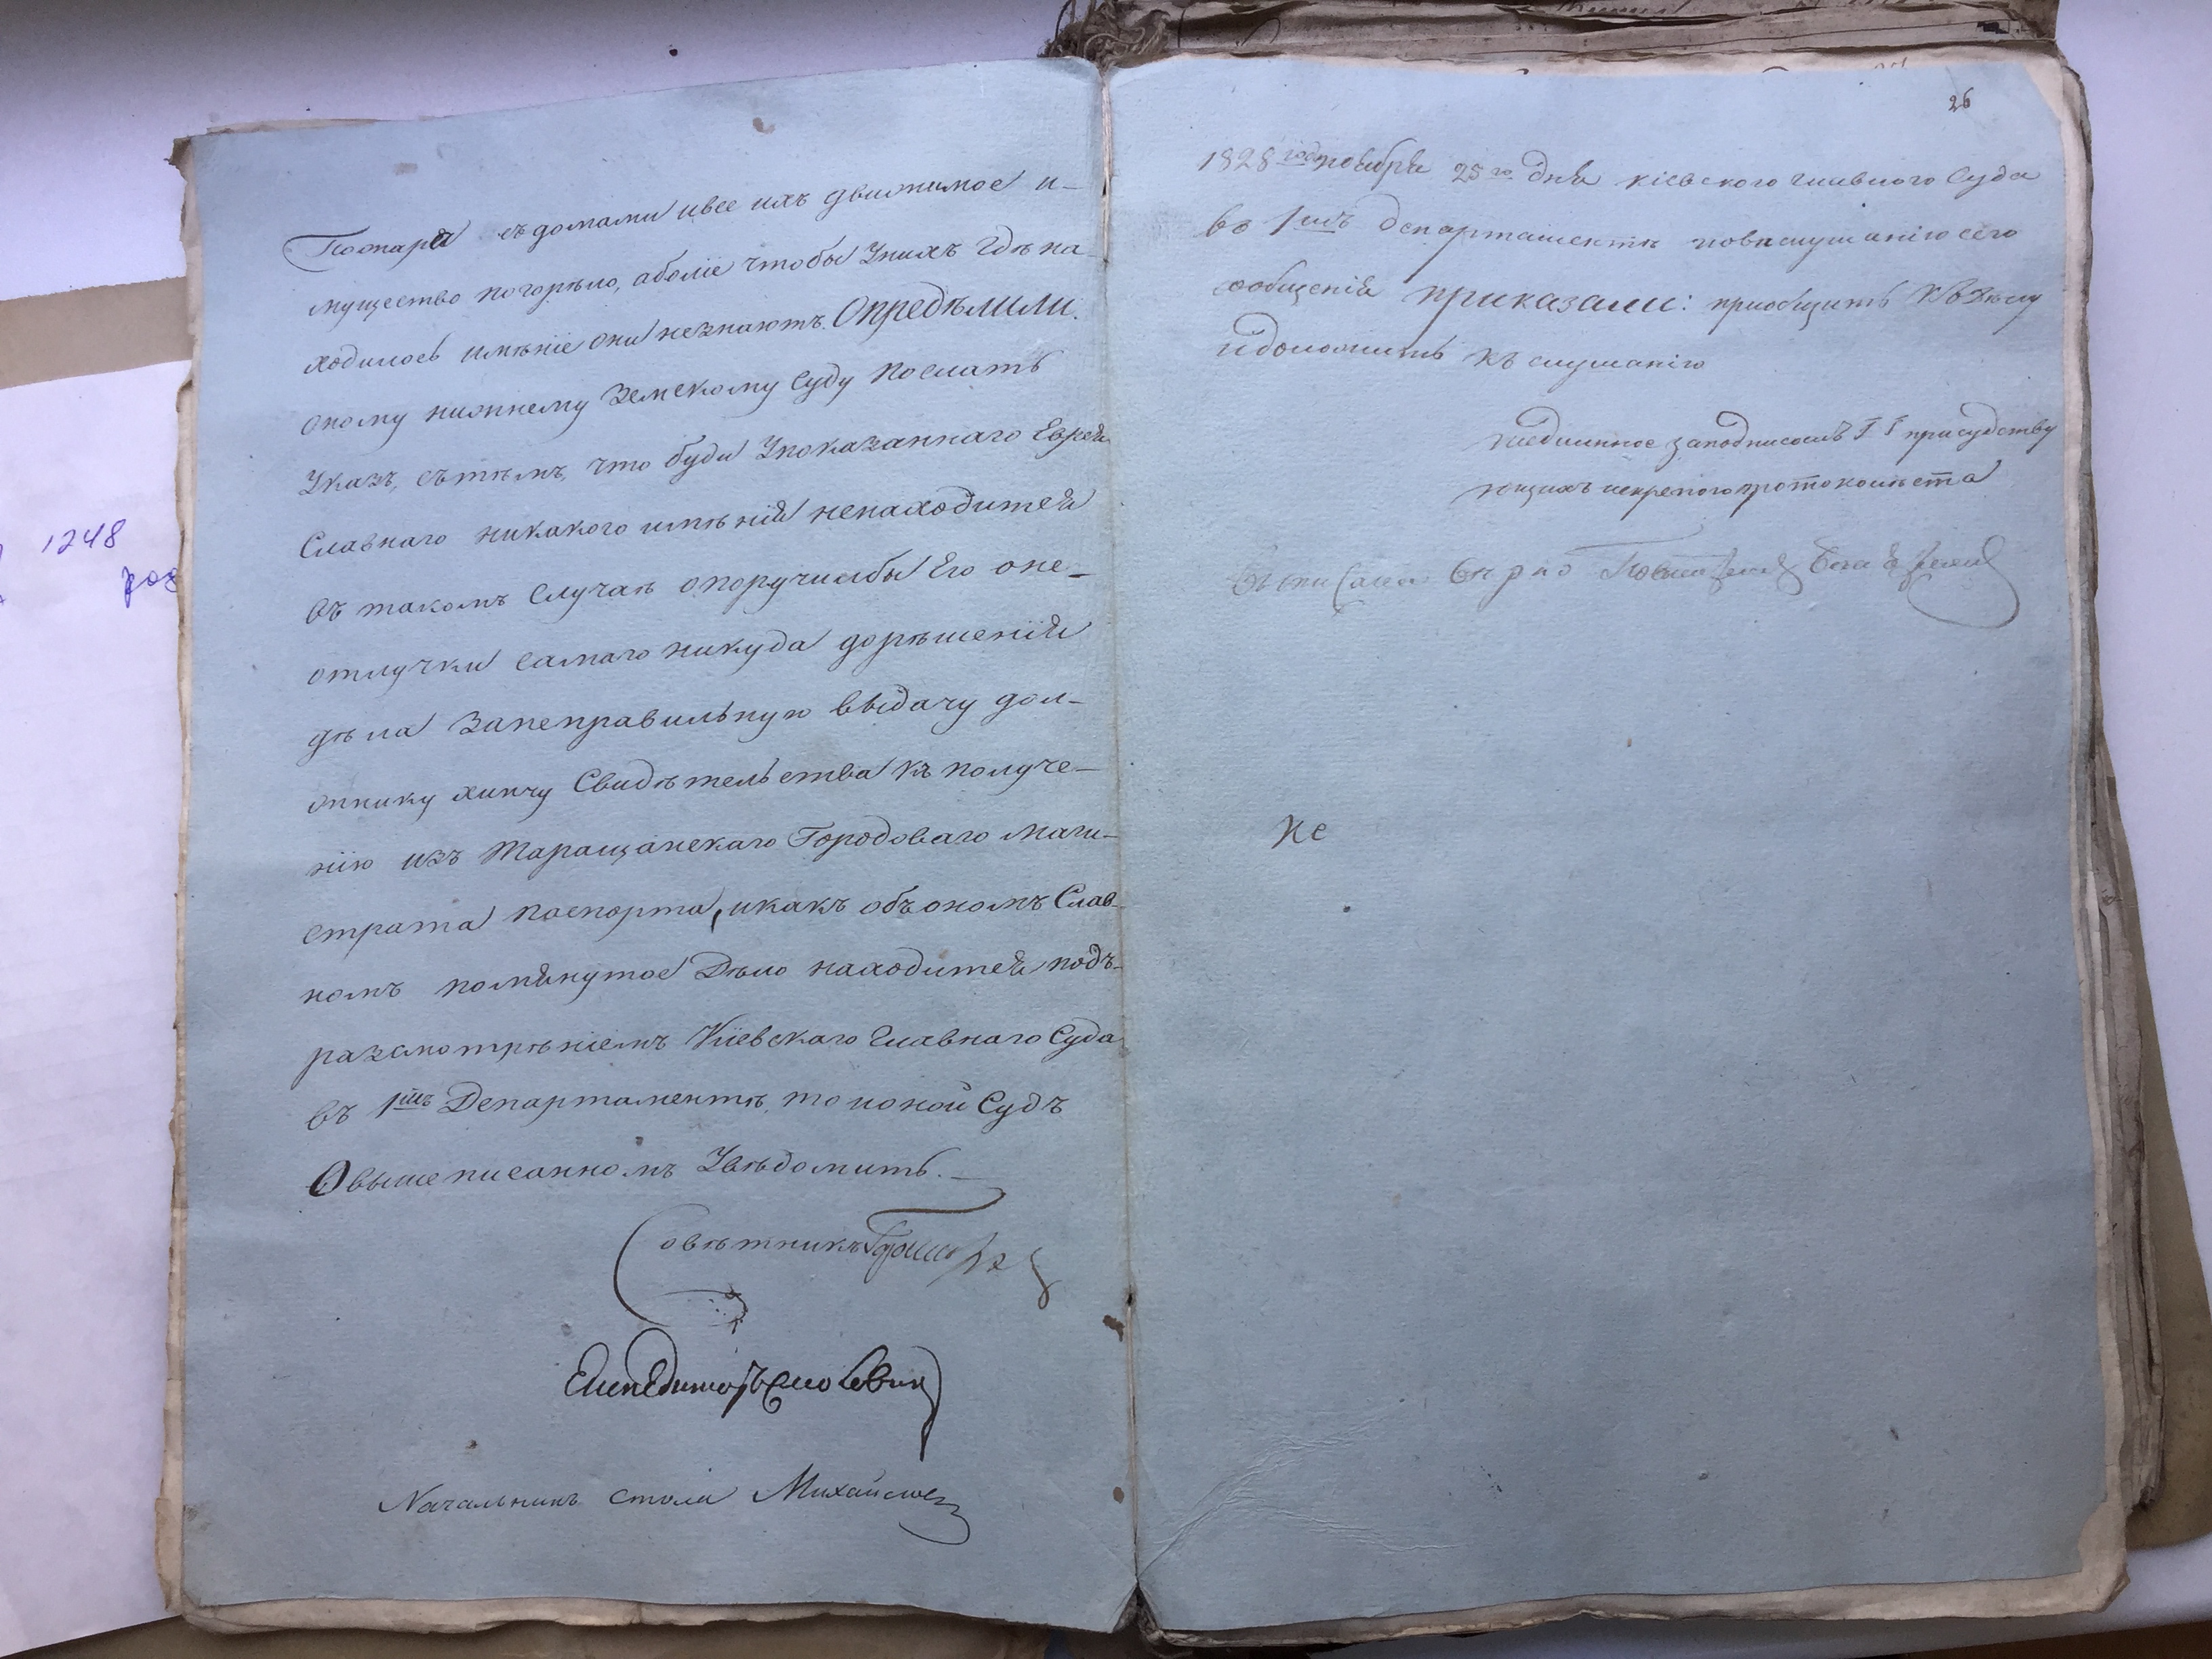 Пожара съ домами ивсе ихъ движимое и-
мущество погорѣло, аболіе чтобы Унихъ гдѣ на-
ходилось имѣніе они незнаютъ. Опредѣлили.
оному нижнему Земскому Суду послать
Указъ, сътѣмъ, что буди Упоказаннаго Еврея
Славнаго никакого имѣнія ненаходится
въ такомъ Случаѣ опоручилбы Его оне-
отлучки самаго никуда дорѣшенія
дѣла Занеправильную выдачу дол-
жнику хипчу Свидѣтельства къ получе-
нію изъ Таращанскаго Городоваго маги-
страта паспорта, икакъ объономъ Слав-
номъ помянутое Дѣло находится подъ-
разсмотрѣніемъ Кіевскаго Главнаго Суда
въ 1мъ Департаментѣ, то ионой Судъ
Овышеписанномъ Увѣдомить.
Совѣтникъ
Начальникъ стола
26
1828 года ноября 25го дня кіевского главного Суда
во 1мъ департаментѣ повыслушанію сего
сообщенія приказали: приобщить къ дѣлу
идоложить къ слушанію
подлинное заподписомъ ГГ присудству
ющихъ искрепою протоколиста
вѣрно
Ке
1248